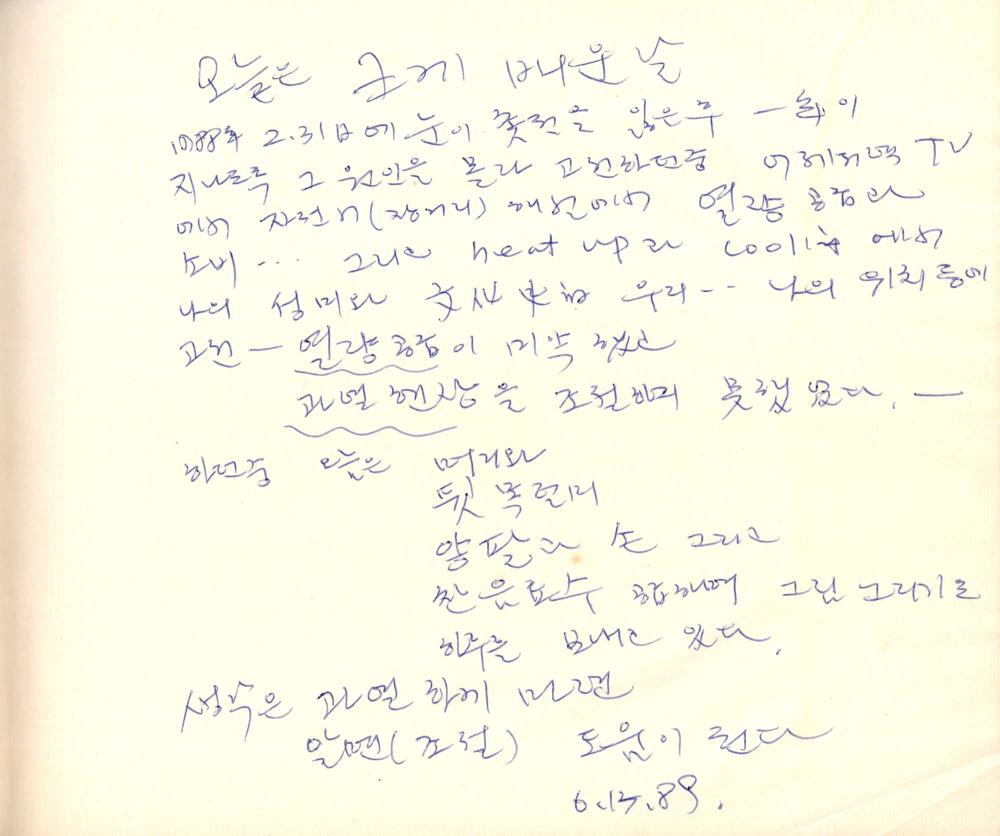 오늘은 크게 배운 날
1988年 2.31日에 눈이 촛점을 잃은 후 一年이
지나도록 그 원인을 몰라 고전하던중 어제저녁 TV
에서 자전거(장거리) 해설에서 열량 공급과
소비... 그리고 heat up과 cooling에서
나의 성미와 우리-- 나의 위치 등에
고전 — 열량공급이 미약했고
과열현상을 조절하지 못했었다. —
하던중 오늘은 머리와
뒷 목덜미
양팔과 손 그리고
찬음료수 공급하며 그림 그리기로
하루를 보내고 있다.
생수은 과열하게 마련
알면(조절) 도움이 된다
6.13.89.